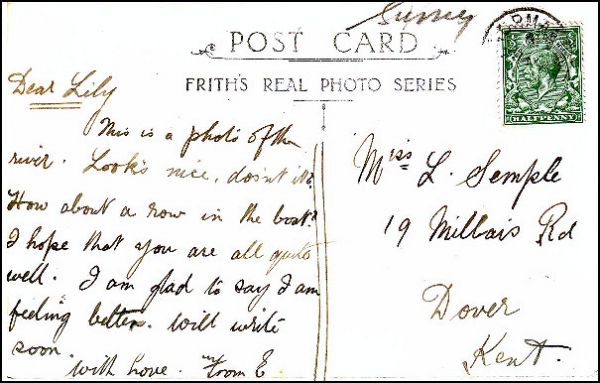 Surrey
POST CARD
FRITH'S REAL PHOTO SERIES
Dear Lily
This is a photo of the
river. Looks nice, doesn't it?
How about a row in the boat?
I hope that you are all quite
well. I am glad to say I am
feeling better. Will write
soon.
With love. from E
Miss L. Semple
19 Millais Rd
Dover
Kent.
HALFPENNY